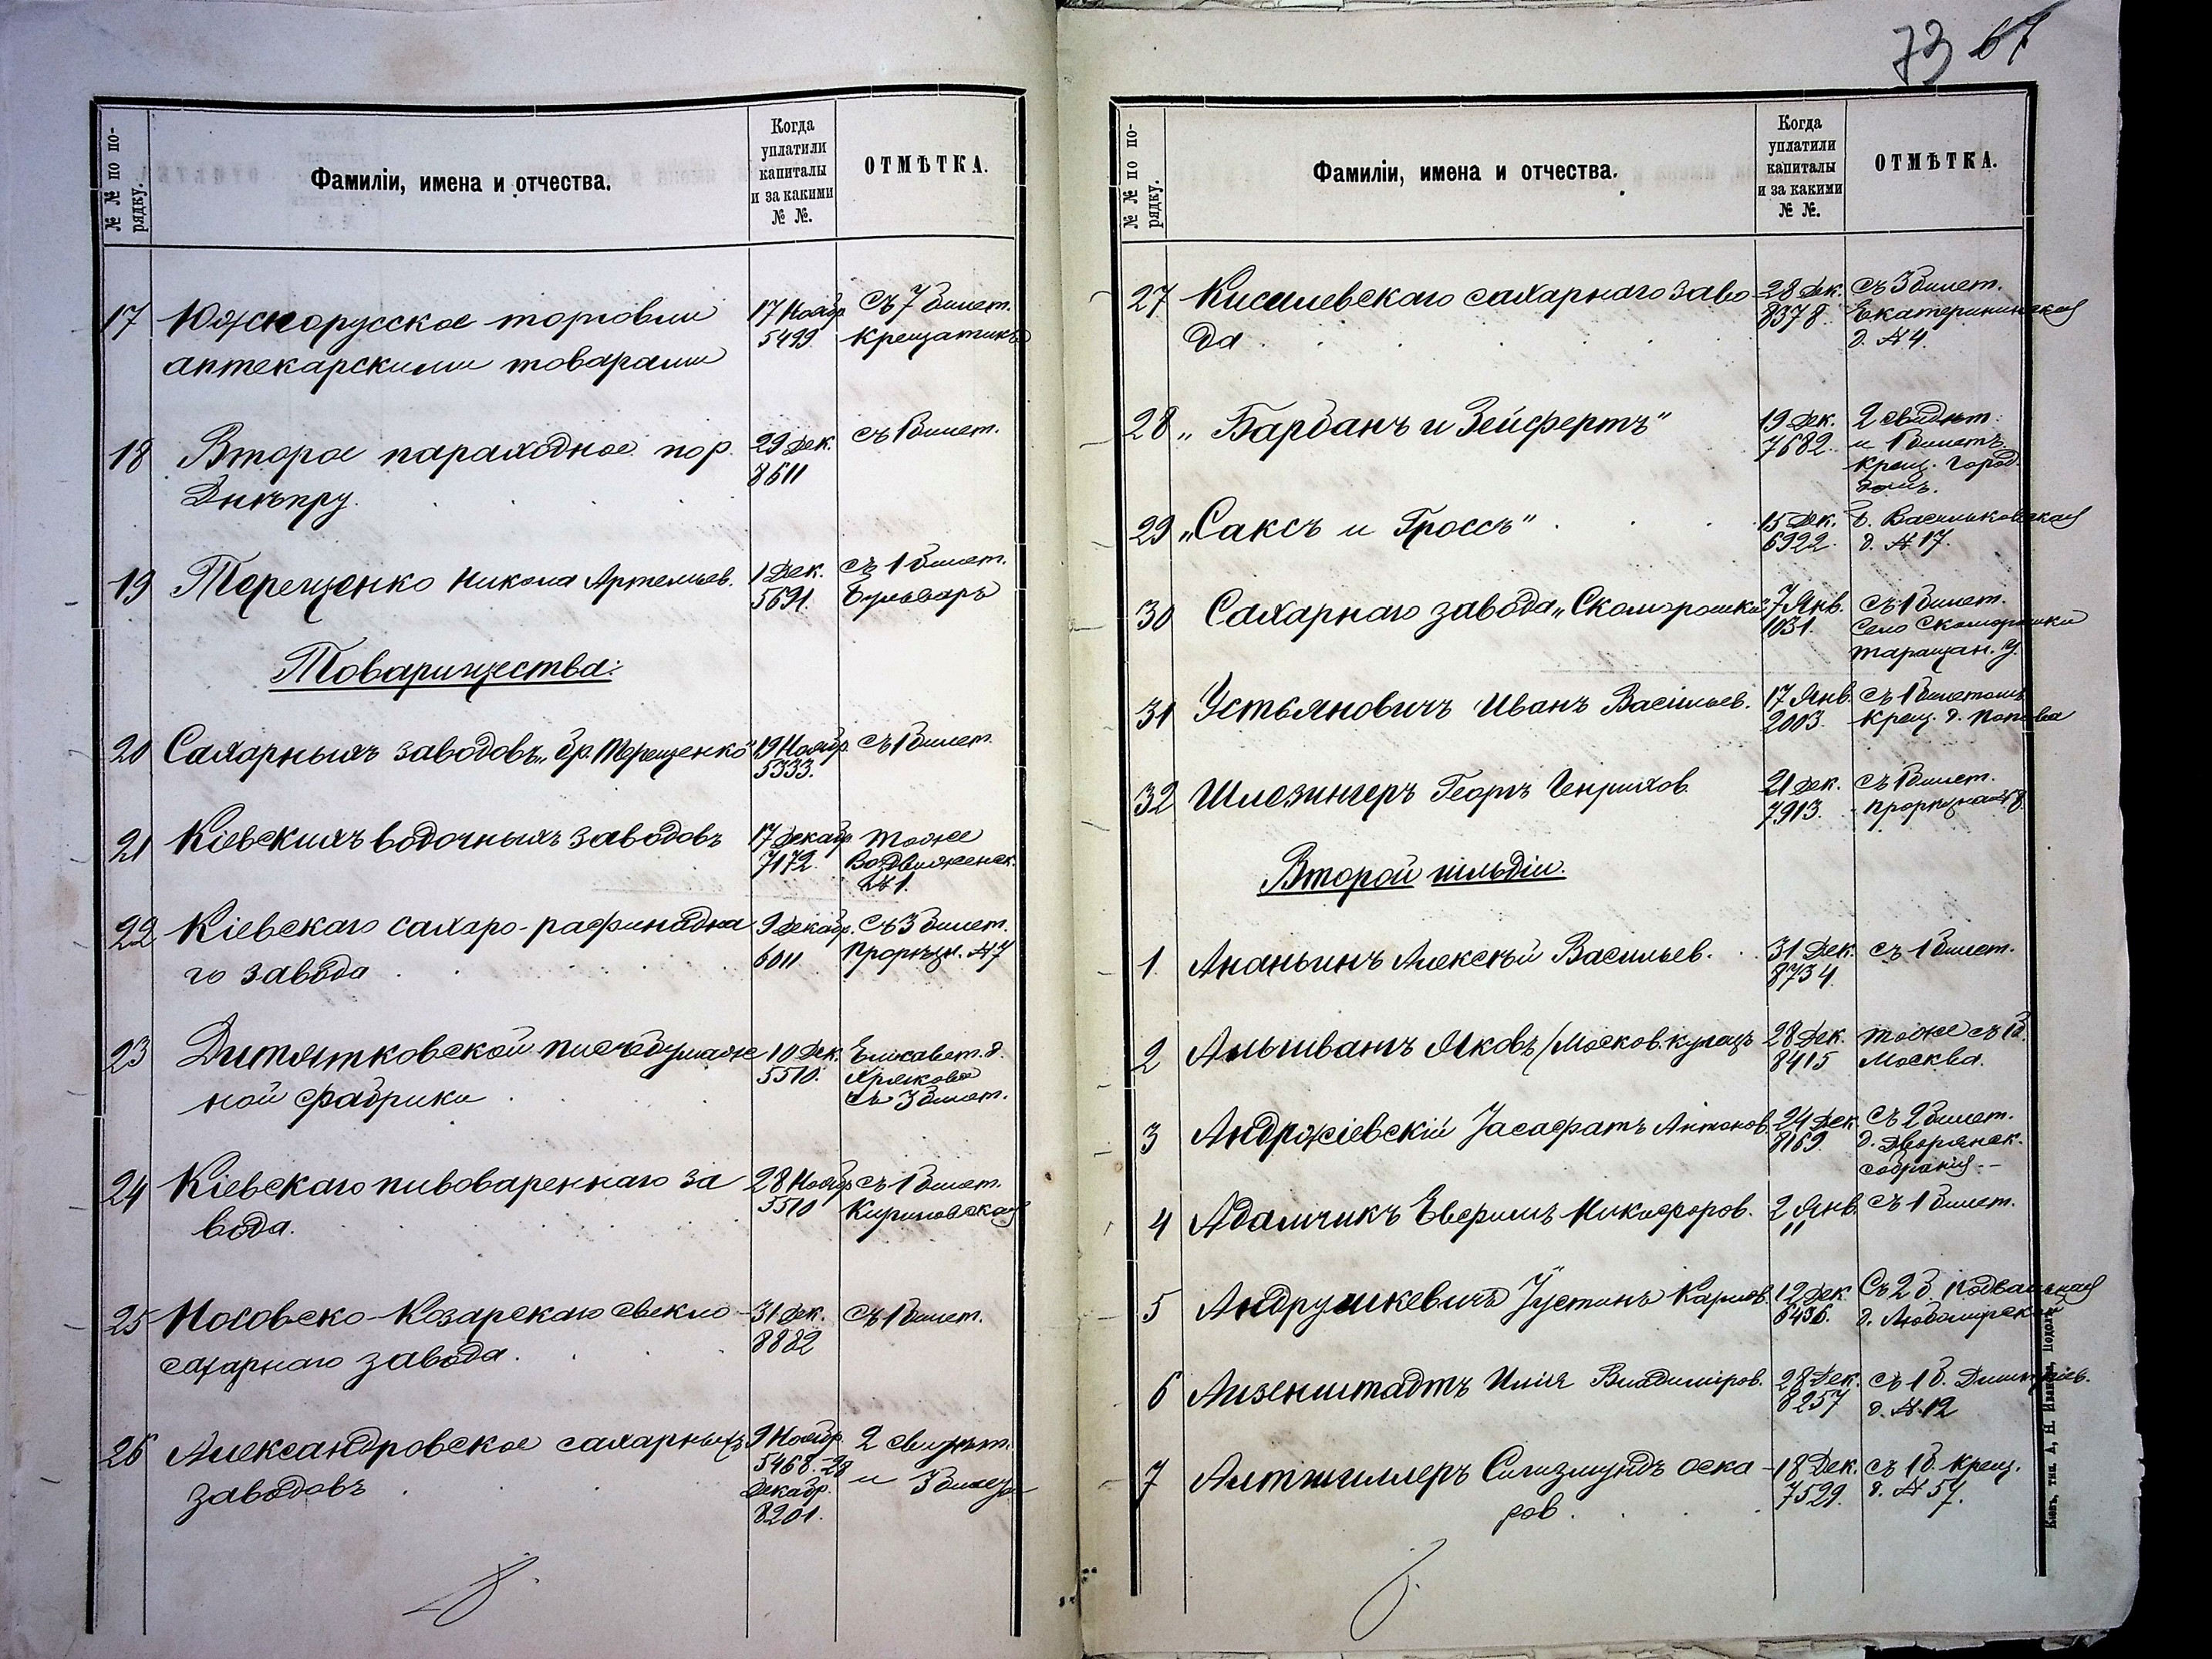 № № по по-
рядку.
Фамиліи, имена и отчества.
Когда
уплатили
капиталы
и за какими
№ №.
ОТМѢТКА.
17 Южнорусское торговли 17 Ноябр. съ 7 билет.
аптекарскими товарами 5499. Крещатикъ
18 Второе пароходное по р. 29 Дек. съ 1 билет.
Днѣпру. 8611
19 Терещенко Никола Артемьев. 1 Дек. съ 1 билет.
5691. Бульваръ
Товарищества:
20 Сахарныхъ заводовъ „бр. Терещенко“ 19 Ноябр. съ 1 билет.
5333.
21 Кіевскихъ водочныхъ заводовъ 17 Декабр. тоже
7172. Воздвиженск.
№ 1.
22 Кіевскаго сахаро-рафинадна 9 Декабр. съ 3 билет.
го завода 6011 Прорѣзн. № 7
23 Дитятковской писчебумаж 10 Дек. Елисавет. д.
ной фабрики 5510. Хрякова
съ 3 билет.
24 Кіевскаго пивовареннаго за 28 Ноябр. съ 1 билет.
вода. 5510 Кириловская
25 Носовско-Козарскаго свекло- 31 Дек. съ 1 билет.
сахарнаго завода. 8882
26 Александровское сахарныхъ 9 Ноябр. 2 свидѣт.
заводовъ 5468. 28 и 3 билет.
Декабр.
8201.
73 67
№ № по по-
рядку.
Фамиліи, имена и отчества.
Когда
уплатили
капиталы
и за какими
№ №.
ОТМѢТКА.
27 Киселевскаго сахарнаго заво 28 Дек. съ 3 билет.
да 8378. Екатерининская
д. № 4.
28 „Барбанъ и Зейфертъ“ 19 Дек. 2 свидѣт.
7682. и 1 билетъ
Крещ. город.
домъ.
29 „Саксъ и Гроссъ“ 15 Дек. Б. Васильковская
6922. д. № 17.
30 Сахарнаго завода „Скоморошки“ 7 Янв. съ 1 билет.
1031. Село Скоморошки
Таращан. у.
31 Устьяновичъ Иванъ Васильев. 17 Янв. съ 1 билетомъ
2003. Крещ. д. Попова
32 Шлезингеръ Георгъ Генрихов. 21 Дек. съ 1 билет.
7913. Прорѣзная 8
Второй гильдіи.
1. Ананьинъ Алексѣй Васильев. 31 Дек. съ 1 билет.
8734.
2 Альшвангъ Яковъ /Москов. купецъ 28 Дек. тоже съ 1 б.
8415 Москва.
3 Андржіевскій Іасафатъ Антонов. 24 Дек. съ 2 билет.
8169. д. Дворянск.
собранія
4 Адамчикъ Евфимъ Никифоров. 2 Янв. съ 1 билет.
11
5 Андрушкевичъ Іустинъ Карлов. 12 Дек. Съ 2 б. Подвальная
6436. д. Любомирской
6 Айзенштадтъ Илія Владиміров. 28 Дек. съ 1 б. Дмитріев.
8257 д. № 12
7 Альтшиллеръ Сигизмундъ Оска 18 Дек. съ 1 б. Крещ.
ров. 7529. д. № 57.
Кіевъ, тип. А. Н. Иванова, Подолъ